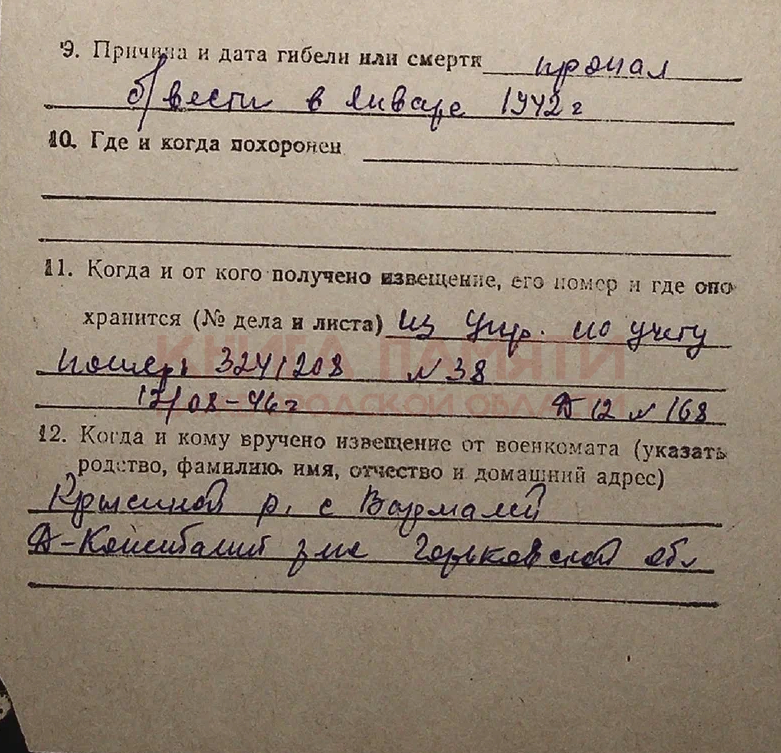 9. Причина и дата гибели или смерти пропал
б/вести в январе 1942 г
10. Где и когда похоронен
11. Когда и от кого получено извещение, его номер и где оно
хранится (№ дела и листа) из упр. по учету
потерь 324/208 N 38
КНИГА ПАМЯТИ
12/08-46 г Д 12 N 168
12. Когда и кому вручено извещение от военкомата (указать
родство, фамилию, имя, отчество и домашний адрес)
р. с Вармалей
Д-Константин Горьковской обл